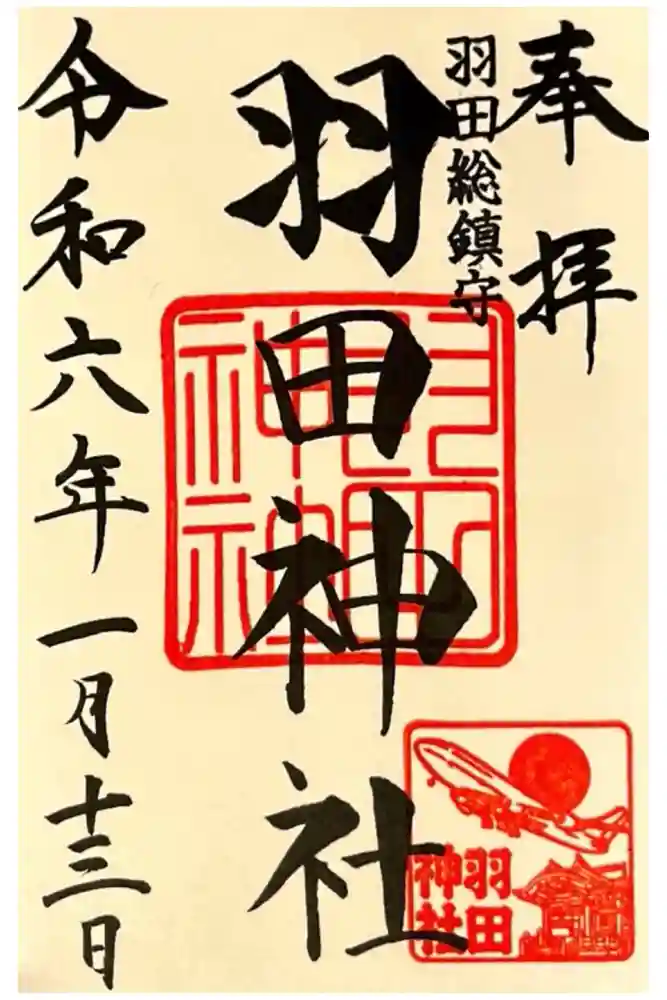 奉拝
羽田総鎮守
羽田神社
令和六年一月十三日
羽田
神社